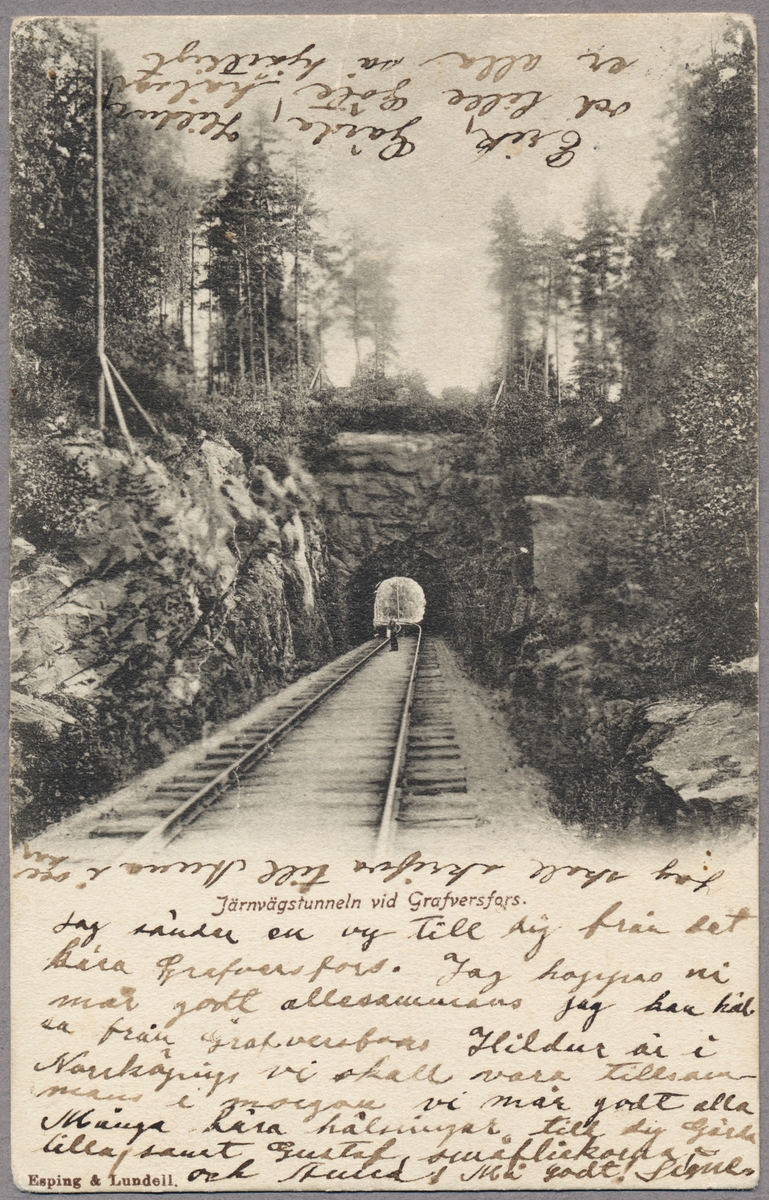 er alla så hjärtligt
och lille Göte hälsa
Erik, Gärda, Hildur,
Jag skall skrifva till Anna i
Järnvägstunneln vid Grafversfors.
Jag sänder en vy till dig från det
kära Grafversfors. Jag hoppas ni
mår godt allesammans jag kan häl
sa från Grafversfors Hildur är i
Norrköping vi skall vara tillsam-
mans i morgon vi mår godt alla
Många kära hälsningar till dig Gärda
lilla, samt Gustaf, småflickorna
och Anna! Må godt! Signe.
Esping & Lundell.